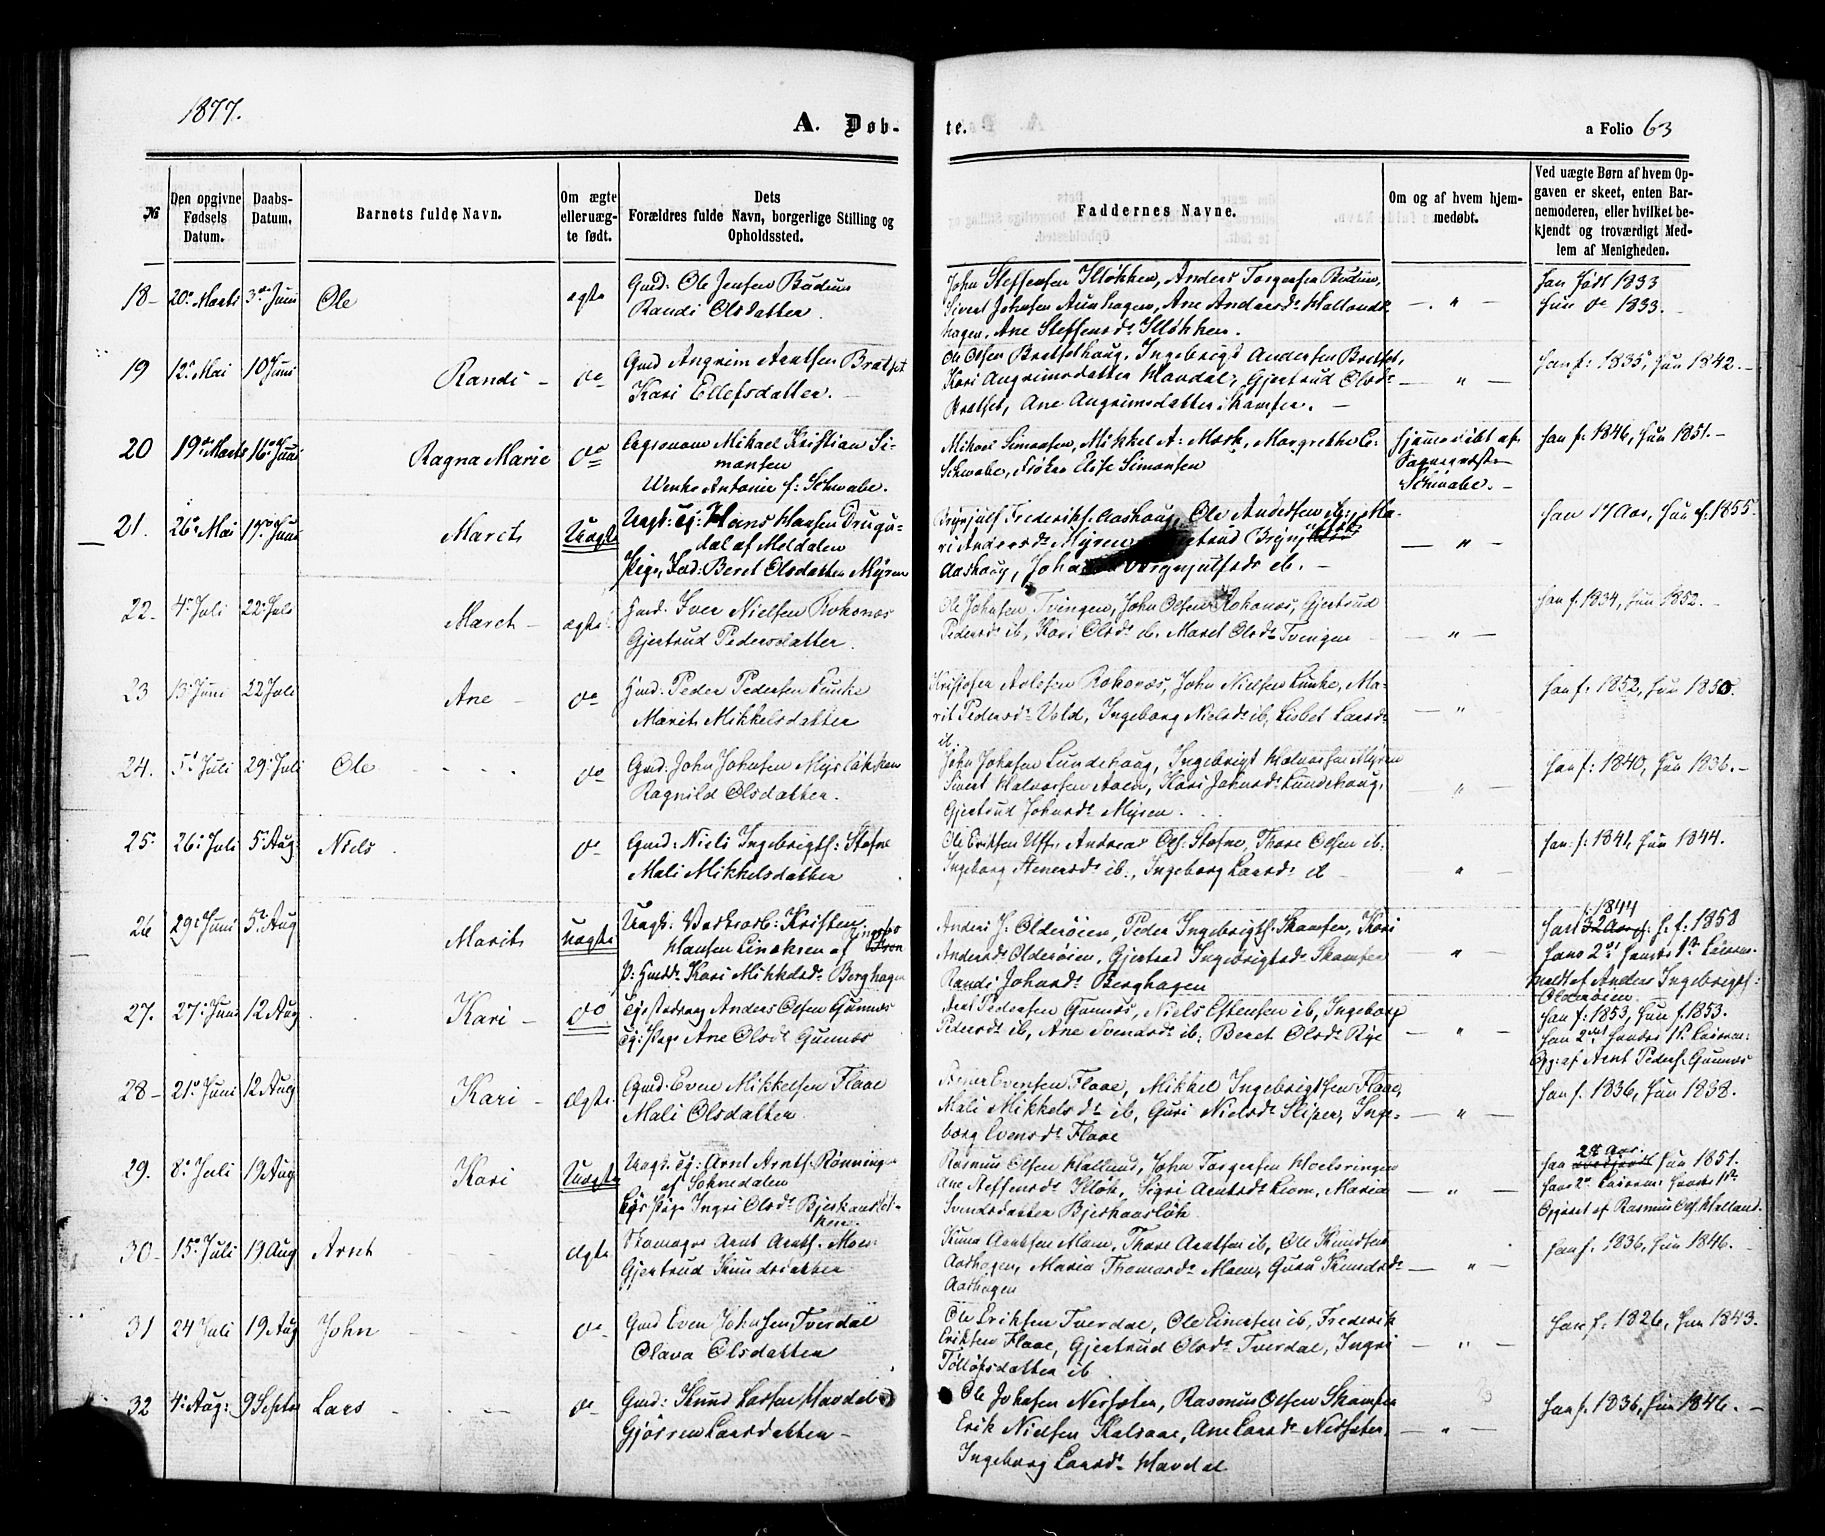 1877.
A. Døb-
te.
a Folio 63
№
Den opgivne Fødsels Datum.
Daabs-Datum.
Barnets fulde Navn.
Om ægte eller uæg-te født.
Dets Forældres fulde Navn, borgerlige Stilling og Opholdssted.
Faddernes Navne.
Om og af hvem hjem-medøbt.
Ved uægte Børn af hvem Op-gaven er skeet, enten Bar-nemoderen, eller hvilket be-kjendt og troværdigt Med-lem af Menigheden.
18 - 20de Marts 3die Juni Ole ægte Gmd. Ole Jensen
Randi Olsdatter.
John Steffensen Kløkken, Anders Torgersen
Sivert Johnsen Aunhagen, Ane Andersd. Hallands-
hagen, Ane Steffensd.
- " -
Han født 1833
Hun do 1833.
19 12te Mai 10 Juni Randi - do Gmd Angrim Arntsen Bratset
Kari Ellefsdatter. -
Ole Olsen Bratsethaug, Ingebrigt Andersen Bratset,
Kari Angrimsdatter Havdal, Gjertrud Olsd.
Bratset, Ane Angrimsdatter Skamfer. -
- " -
Han f: 1835, Hun 1842. -
20 19de Marts 16de Juni Ragna Marie do Agronom Mikael Kristian Si-
monsen
Wenke Antonie f: Schwabe.
Mikael Simonsen, Mikkel A: Mørk, Margrethe E:
Schwabe, Frøken Elise Simonsen
Hjemmedøbt af
Sognepræst
Schwabe. -
Han f: 1846, Hun 1851. -
21. 26de Mai 17de Juni Marit Uægte Uægt: Gj: Hans Hansen Drugu-
dal af Meldalen
Pige, Beret Olsdatter Myren
Brynjulf Frederiksf. Aashaug, Ole Andersen Ma-
ri Andersd. Myren
Aashaug, Brynjulfsd. ib. -
- " -
Han 17 Aar, Hun f. 1855.
22. 4de Juli 22de Juli Marit - ægte Gmd. Iver Nielsen Rokones
Gjertrud Pedersdatter.
Ole Johnsen Tvingen, John Olsen Rokones, Gjertrud
Pedersd. ib, Kari Olsd. ib. Maret Olsd. Tvingen
- " -
Han f. 1834, Hun 1852. -
23 13de Juni 22 Juli Ane - do Gmd: Peder Pedersen Lunke
Marit Mikkelsdatter
Kristofer Rokones, John Nielsen Lunke, Ma-
rit Pedersd. Vold, Ingeborg Nielsd. ib, Lisbet Larsd.
ib.
- " -
Han f: 1852, Hun 1850.
24. 5te Juli 29de Juli Ole do Gmd. John Johnsen
Ragnild Olsdatter.
John Johnsen Lundehaug, Ingebrigt Halvorsen Myren
Sivert Halvorsen Kari Johnsd. Lundehaug,
Gjertrud Johnsd. Myren.
"
Han f: 1840, Hun 1836. -
25. 26de Juli 5te Aug: Niels do Gmd: Niels Ingebrigts: Stofne
Mali Mikkelsdatter
Ole Eriksen Uff, Andreas Ols. Stofne, Thore Olsen ib.
Ingeborg ib., Ingeborg Larsd. ib -
" -
Han f: 1841, Hun 1844.
26 29de Juni 5te Aug Marit uægte Uægt: Kristen
Hansen af
Kari Mikkelsd. Berghagen
Anders J. Olderøien, Peder Ingebrigts. Skamfer, Kari
Andersd. Olderøien, Gjertrud Ingebrigtsd. Skamfer
Randi Johnsd. Berghagen
"
1844
Han 32 Aar f: 1858
Hans 2det Hendes 1ste Leierm.
Meldt af Anders Ingebrigts:
Olderøien
27. 27de Juni 12 Aug Kari - do Anders Olsen Gunnes
Gj: Pige Ane Olsd. Gunnes
Arnt Pedersen Gunnes, Niels Estensen ib, Ingeborg
Pedersd. ib, Ane Svendsd. ib, Beret Olsd. Rye
- " -
Han f: 1853, Hun f. 1853.
Han 2det Hendes 1ste Leierm:
Opg: af Arnt Peders: Gunnes
28 - 21de Juni 12 Aug Kari - Ægte. Gmd. Even Mikkelsen Flaae
Mali Olsdatter.
Evensen Flaae, Mikkel Ingebrigtsen Flaae,
Mali Mikkelsd. ib, Guri Nielsd. Sliper, Inge-
borg Evensd. Flaae
- " -
Han f. 1836, Hun 1838.
29. 8de Juli 19 Aug Kari Uægte Uægt. Gj: Arnt Arnts: Rønninge
af Soknedalen
Pige Ingri Olsd.
Rasmus Olsen Halland, John Torgersen
Ane Steffensd. Sigri Arntsd. Leom, Maria
Svendsdatter
- " -
28 Aar
Han Hun 1851.
Hans 2de Leierm: Hendes 1ste
Opgivet af Rasmus Ols. Halland.
30 - 15de Juli 19 Aug Arnt ægte Skomager Arnt Arnts. Moen
Gjertrud Knudsdatter
Arntsen Moen, Thore Arntsen ib, Ole Knudsen
Aashagen, Maria Thomasd. Moen, Guru Knudsd.
Aashagen
- " -
Han f. 1836, Hun 1846. -
31 24 Juli 19 Aug John do Gmd Even Johnsen Tverdal
Olava Olsdatter
Ole Eriksen Tverdal, Ole Einersen ib, Frederik
Eriksen Flaae, Gjertrud Olsd. Tverdal, Ingri
Tølløfsdatter ib.
- " -
Han f: 1826, Hun 1843.
32 4de Aug: 9 Septbr Lars do Gmd: Knud Larsen Havdal
Gjørren Larsdatter -
Ole Johnsen Nersæter, Rasmus Olsen Skamfer
Erik Nielsen Kalsaae, Ane Larsd. Nersæter,
Ingeborg Larsd. Havdal
- " -
Han f. 1836, Hun 1846. -